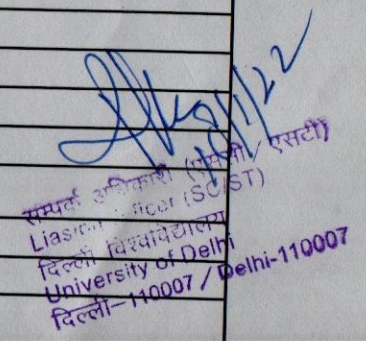 सम्पर्क अधिकारी (एससी/एसटी)
Liaison Officer (SC/ST)
दिल्ली विश्वविद्यालय
University of Delhi
दिल्ली-110007 / Delhi-110007